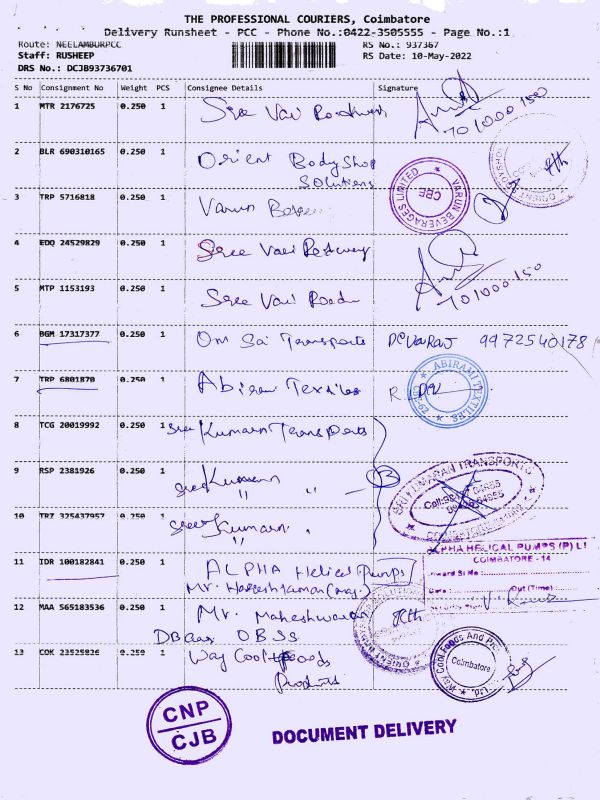 THE PROFESSIONAL COURIERS, Coimbatore
Delivery Runsheet - PCC - Phone No.:0422-3505555 - Page No.:1
Route: NEELAMBURPCC RS No.: 937367
Staff: RUSHEEP RS Date: 10-May-2022
DRS No.: DCJB93736701
S No Consignment No Weight PCS Consignee Details Signature
1 MTR 2176725 0.250 1 Sree Vari Roadways
701000150
2 BLR 690310165 0.250 1 Orient Body Shop
Solutions
3 TRP 5716818 0.250 1 Varun
VARUN BEVERAGES LIMITED CBE
4 EDQ 24529829 0.250 1 Sree Vari
701000150
5 MTP 1153193 0.250 1 Sree Vari
6 BGM 17317377 0.250 1 Om Sai Transports 9972540178
7 TRP 6801870 0.250 1 Abirami Textiles
ABIRAMI TEXTILES
8 TCG 20019992 0.250 1 Sree Kumaran Transports
9 RSP 2381926 0.250 1 Sree Kumaran " "
TRANSPORTS
10 TRZ 375437957 0.250 1 Sree Kumaran "
11 IDR 100182841 0.250 1 ALPHA Helical Pumps
ALPHA HELICAL PUMPS (P) L
COIMBATORE - 14
Inward Sl No
Date Out (Time)
12 MAA 565183536 0.250 1 Mr. Maheshwaran
DBSS
13 COK 23525826 0.250 1 Way Cool Foods
Products
Way Cool Foods And Pro Ltd. Coimbatore
CNP
CJB
DOCUMENT DELIVERY